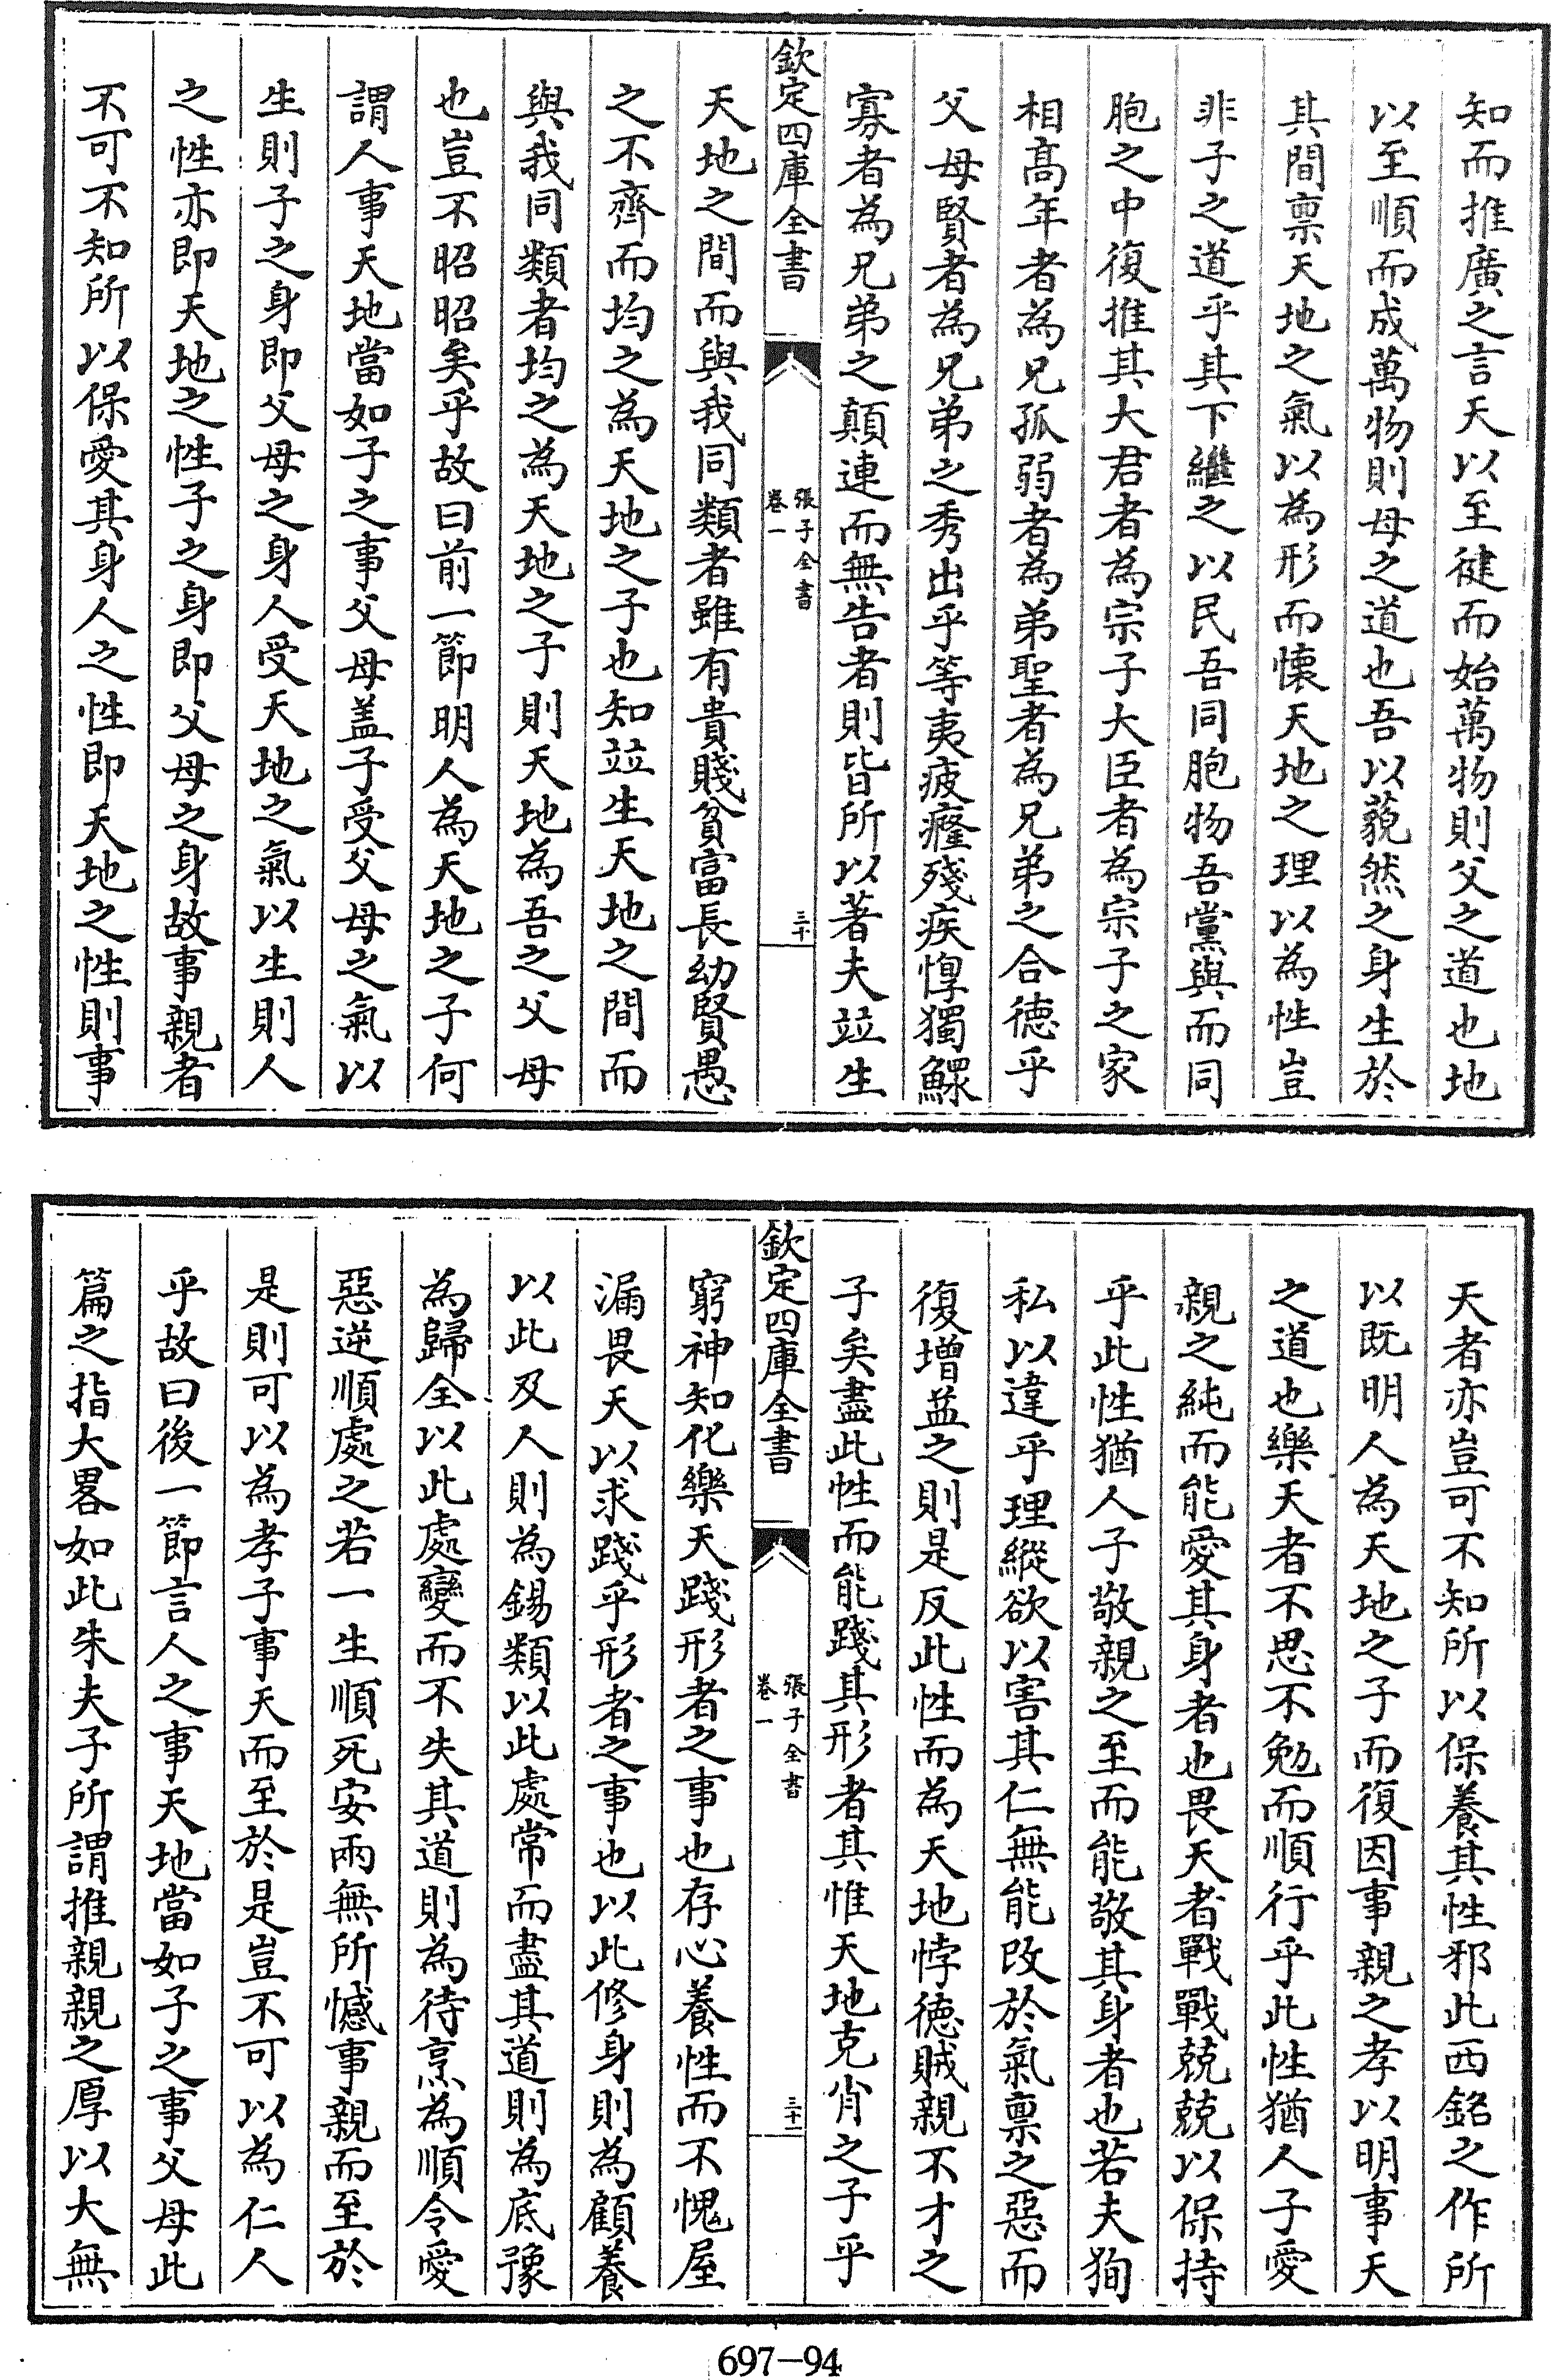 知而推廣之言天以至健而始萬物則父之道也地
以至順而成萬物則母之道也吾以藐然之身生於
其間禀天地之氣以為形而懐天地之理以為性豈
非子之道乎其下繼之以民吾同胞物吾黨與而同
胞之中復推其大君者為宗子大臣者為宗子之家
相髙年者為兄孤弱者為弟聖者為兄弟之合徳乎
父母賢者為兄弟之秀出乎等夷疲癃殘疾惸獨鰥
寡者為兄弟之顛連而無告者則皆所以著夫竝生
欽定四庫全書
張子全書
卷一
三十
天地之間而與我同類者雖有貴賤貧富長幼賢愚
之不齊而均之為天地之子也知竝生天地之間而
與我同類者均之為天地之子則天地為吾之父母
也豈不昭昭矣乎故曰前一節明人為天地之子何
謂人事天地當如子之事父母盖子受父母之氣以
生則子之身即父母之身人受天地之氣以生則人
之性亦即天地之性子之身即父母之身故事親者
不可不知所以保愛其身人之性即天地之性則事
天者亦豈可不知所以保養其性邪此西銘之作所
以既明人為天地之子而復因事親之孝以明事天
之道也樂天者不思不勉而順行乎此性猶人子愛
親之純而能愛其身者也畏天者戰戰兢兢以保持
乎此性猶人子敬親之至而能敬其身者也若夫狥
私以違乎理縱欲以害其仁無能改於氣禀之惡而
復增益之則是反此性而為天地悖徳賊親不才之
子矣盡此性而能踐其形者其惟天地克肖之子乎
欽定四庫全書
張子全書
卷一
三十一
窮神知化樂天踐形者之事也存心養性而不愧屋
漏畏天以求踐乎形者之事也以此修身則為顧養
以此及人則為錫類以此處常而盡其道則為底豫
為歸全以此處變而不失其道則為待烹為順令愛
惡逆順處之若一生順死安兩無所憾事親而至於
是則可以為孝子事天而至於是豈不可以為仁人
乎故曰後一節言人之事天地當如子之事父母此
篇之指大畧如此朱夫子所謂推親親之厚以大無
697-94